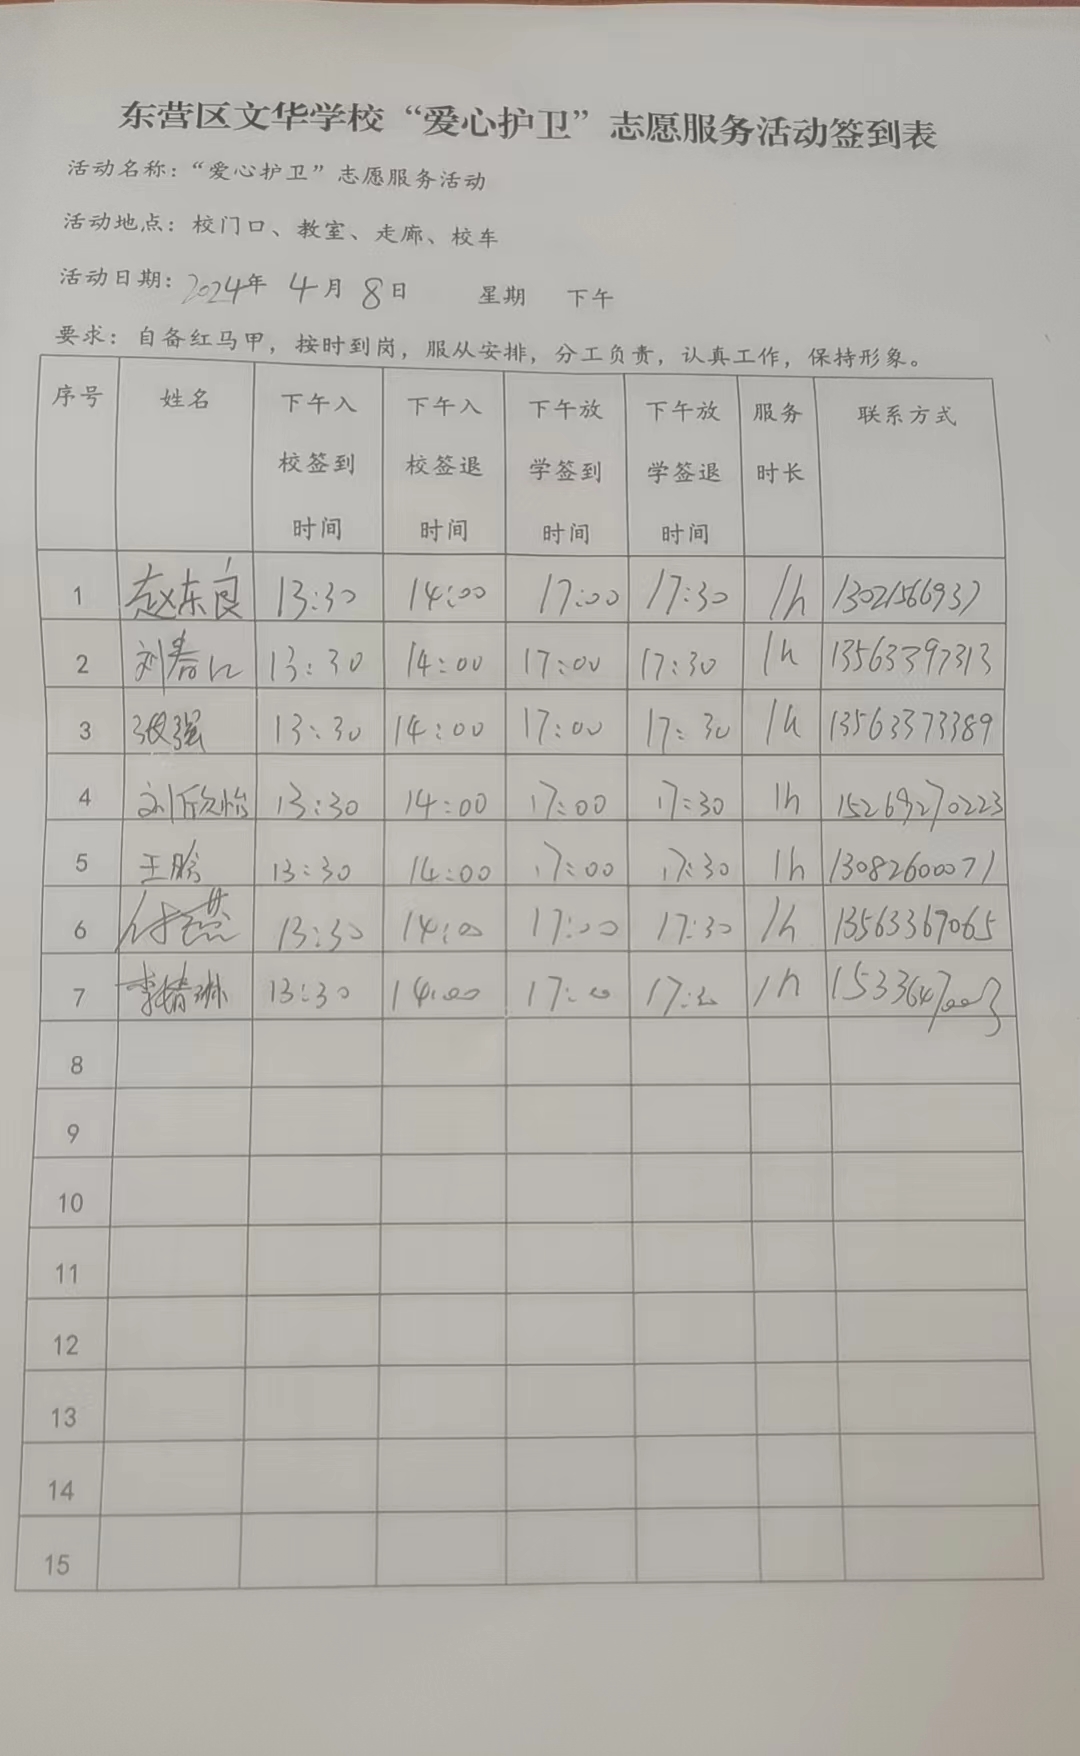 东营区文华学校“爱心护卫”志愿服务活动签到表
活动名称：“爱心护卫”志愿服务活动
活动地点：校门口、教室、走廊、校车
活动日期：2024年 4月 8日 星期 下午
要求：自备红马甲，按时到岗，服从安排，分工负责，认真工作，保持形象。
序号 姓名 下午入校签到时间 下午入校签退时间 下午放学签到时间 下午放学签退时间 服务时长 联系方式
1 赵东良 13:30 14:00 17:00 17:30 1h
2 刘春江 13:30 14:00 17:00 17:30 1h 13563397313
3 张强 13:30 14:00 17:00 17:30 1h 13563373389
4 刘欣怡 13:30 14:00 17:00 17:30 1h 15269270223
5 王 13:30 14:00 17:00 17:30 1h 13082600071
6 付燕 13:30 14:00 17:00 17:30 1h 13563367065
7 李婧琳 13:30 14:00 17:00 17:30 1h
8
9
10
11
12
13
14
15